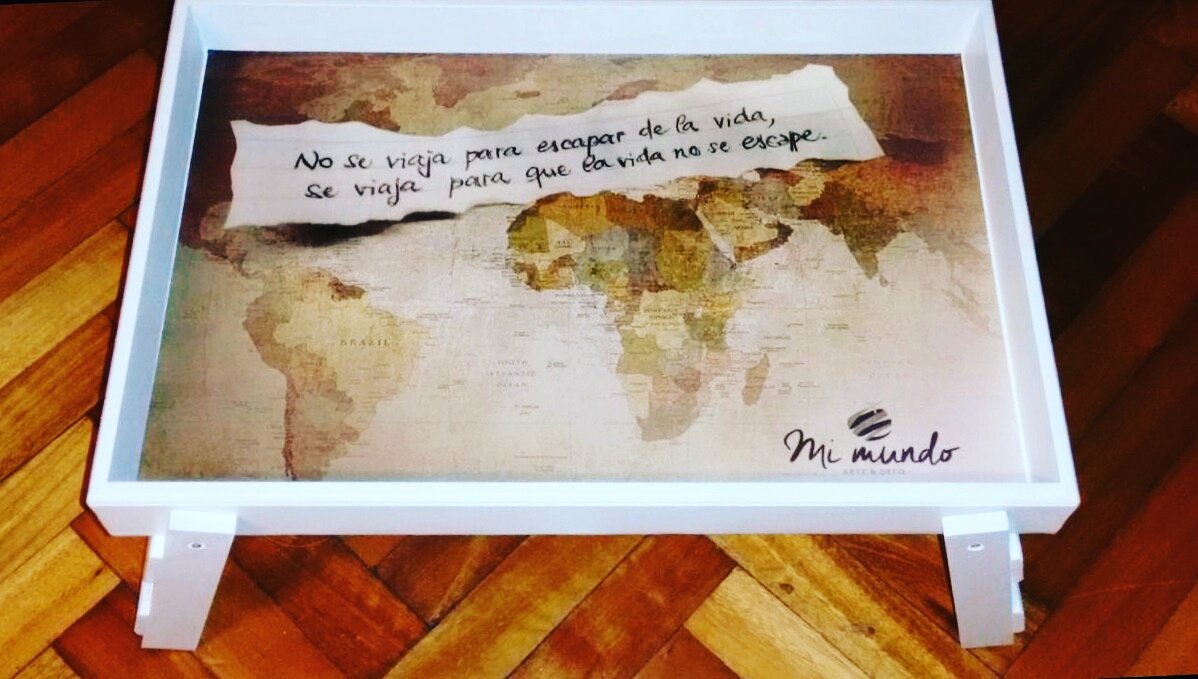 No se viaja para escapar de la vida,
se viaja para que la vida no se escape.
BRAZIL
SOUTH
ATLANTIC
OCEAN
Mi mundo
ARTE & DECO